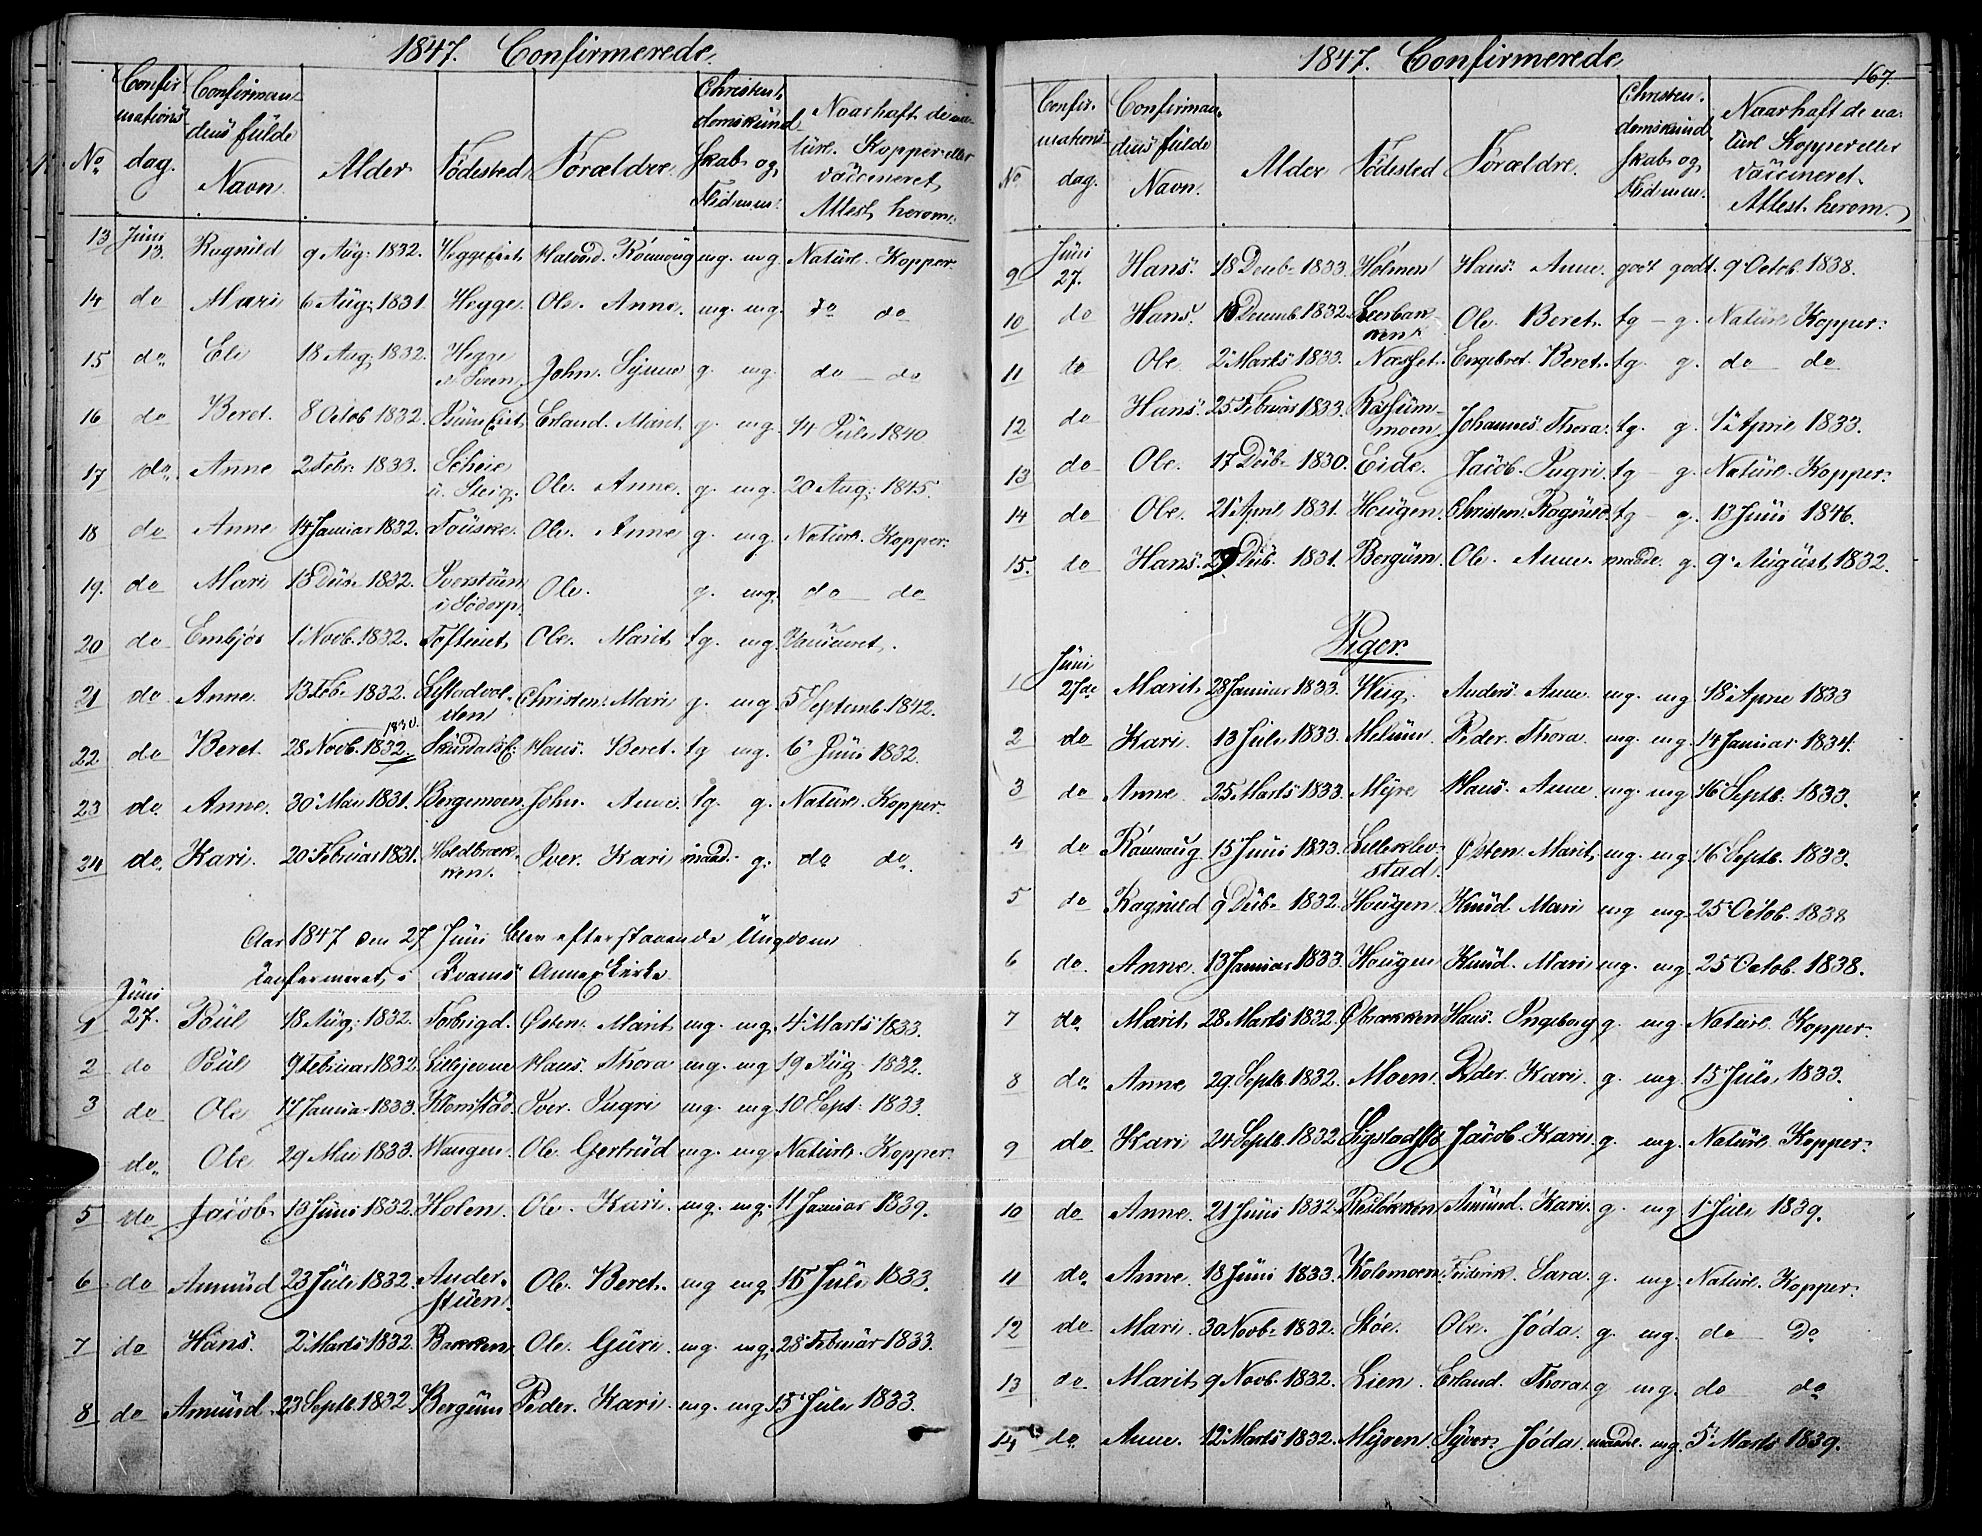 1847. Confirmerede.
No Confirmations dag. Confirmandens fulde Navn Alder Födested Forældre. Christendomskundskab og Flid m.m. Naar haft de naturl. Kopper eller vaccineret, Attest herom.
13 Juni 13. Ragnild 9 Aug: 1832. Heggeeiet Halvord. Rönnoug mg. mg. Naturl. Kopper.
14 do Mari 6 Aug: 1831. Hegge. Ole. Anne. mg. mg. do do
15 do Eli 18 Aug: 1832. Hegge John. g. mg. do do
16 do Beret. 8 Octob 1832. Erland. Marit g. mg. 14 Juli 1840
17 do. Anne 2 Febr. 1833. Scheie i. Steig. Ole. Anne. g. mg. 20 Aug: 1845.
18 do Anne 14 Januar 1832. Fouske. Ole. Anne g. mg. Naturl. Kopper.
19. do Mari 1832. i Södorp. Ole. g. mg. do do
20 do Embjör 1 Novb. 1832. Tofteeiet, Ole. Marit tg. mg. Vaccineret.
21 do Anne. 13 Feb. 1832. Listadvolden Christen. Mari g. mg. 5 Septemb. 1842.
22 do Beret. 28 Novb. 1832. 1830. Hans. Beret. tg mg. 6 Juni 1832.
23 do. Anne. 30 Mai 1831. Bergemoen John. Anne. tg. g. Naturl. Kopper.
24 do. Kari. 20 Februar 1831. Holdbrækken. Iver. Kari maad. g. do do.
Aar 1847 den 27 Juni blev efterstaaende Ungdom
Confirmeret, i Qvams Annex Kirke
1 Juni 27. Poul 18 Aug: 1832. Forbrigd. Østen. Marit mg. mg. 4 Marts 1833.
2 do Poul 9 Februar 1832. Lillejevne Hans. Thora mg. mg 19 Aug. 1832.
3 do Ole 17 Januar 1833. Klevstad. Iver. Ingri mg. mg. 10 Sept: 1833.
do. Ole 29 Mai 1833. Wangen. Ole. Gertrud mg. mg. Naturl. Kopper.
5 do Jacob 13 Juni 1832. Holen. Ole. Kari. mg. mg. 11 Januar 1839.
6 do Amund 23 Juli 1832. Anderstuen. Ole. Beret. mg mg. 15 Juli 1833.
7 do Hans. 2 Marts 1832. Bakken. Ole. Guri. mg. mg. 28 Februar 1833.
8 do Amund. 23 Septb. 1832. Bergum Peder. Kari. mg. mg. 15 Juli 1833.
1847. Confirmerede. 167.
No Confirmations dag. Confirmandens fulde Navn. Alder Födested Forældre. Christendomskundskab og Flid m.m. Naar haft de naturl. Kopper eller vaccineret. Attest herom.
9 Juni 27. Hans. 18 Decbr 1833. Holmen Hans. Anne. godt godt. 9 Octob. 1838.
10 do Hans. 18 Decemb. 1832. Leerbakken Ole. Beret. tg - g. Naturl. Kopper.
11 do Ole 2 Marts 1833. Næsset. Engebret. Beret. tg. g. do do
12 do Hans. 25 Februar 1833. Johannes. Thora. tg. g. 1 April 1833.
13 do Ole. 17 Decbr 1830. Eide. Jacob. Ingri. tg - g. Naturl. Kopper.
14 do Ole. 21 April 1831. Hougen. Christen. Ragnild. tg - g. 13 Juni 1846.
15. do Hans. 29 Decb. 1831. Bergum. Ole. Anne. maade. g. 9 August, 1832.
Piger.
1 Juni 27de Marit, 28 Januar 1833. Wiig. Anders. Anne mg. mg 18 April 1833
2 do Kari. 13 Juli 1833. Melum. Peder. Thora. mg. mg. 14 Januar 1834.
3 do Anne 25 Marts 1833. Myre Hans. Anne mg. mg. 16 Septb. 1833.
4 do Rönnaug 15 Juni 1833. Lilleklevstad. Østen. Marit, mg. mg. 16 Septb. 1833.
5 do Ragnild 9 Decbr 1832. Hougen Knud Mari mg mg. 25 Octob. 1838
6 do. Anne. 13 Januar 1833. Hougen Knud. Mari mg. mg. 25 Octob. 1838.
7 do. Marit, 28 Marts 1832. Øbrækken Hans. Ingeborg g. mg. Naturl. Kopper.
8 do. Anne 29 Septb. 1832. Moen. Peder. Kari. g. mg. 15 Juli 1833.
9 do Kari 24 Septb. 1832. Jacob. Kari. g. mg. Naturl. Kopper.
10 do Anne. 21 Juni 1832. Amund. Kari. g. mg. 1 Juli 1839.
11 do. Anne. 18 Juni 1833. Kolomoen. Fridrik. Sara. g. mg. Naturl. Kopper.
12 do Mari. 30 Novbr 1832. Stöe. Ole. Jóda. g. mg. do Do
13 do Marit, 9 Novb. 1832. Lien. Erland. Thora. g mg. do do
14 do. Anne. 12 Marts 1832. Myren Syver. Jóda. maadel. mg. 5 Marts 1839.